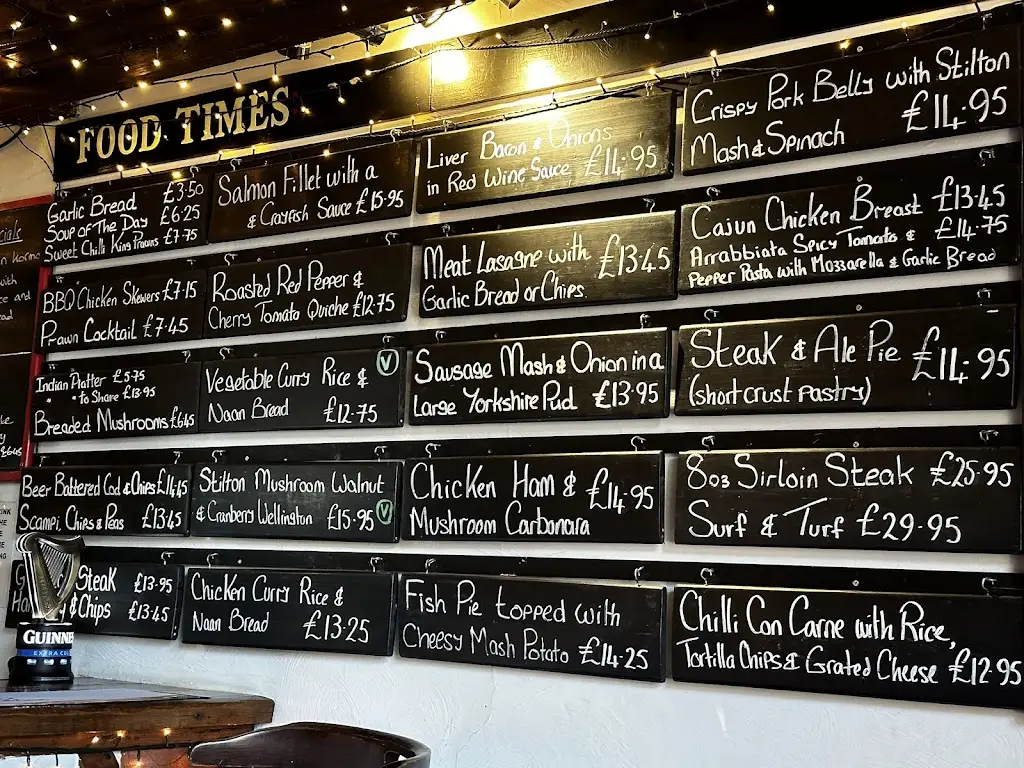 FOOD TIMES
Garlic Bread £3.50
Soup of The Day £6.25
Sweet Chilli King Prawns £7.75
BBQ Chicken Skewers £7.15
Prawn Cocktail £7.45
Indian Platter £5.75
" " to Share £13.95
Breaded Mushrooms £6.45
Beer Battered Cod & Chips £14.45
Scampi, Chips & Peas £13.45
Steak £13.95
& Chips £13.45
Salmon Fillet with a
& Crayfish Sauce £15.95
Roasted Red Pepper &
Cherry Tomato Quiche £12.75
Vegetable Curry Rice & V
Naan Bread £12.75
Stilton Mushroom Walnut
& Cranberry Wellington £15.95 V
Chicken Curry Rice &
Naan Bread £13.25
Liver Bacon & Onions
in Red Wine Sauce £14.95
Meat Lasagne with £13.45
Garlic Bread or Chips
Sausage Mash & Onion in a
Large Yorkshire Pud £13.95
Chicken Ham & £14.95
Mushroom Carbonara
Fish Pie topped with
Cheesy Mash Potato £14.25
Crispy Pork Belly with Stilton
Mash & Spinach £14.95
Cajun Chicken Breast £13.45
Arrabbiata Spicy Tomato & £14.75
Pepper Pasta with Mozzarella & Garlic Bread
Steak & Ale Pie £14.95
(shortcrust pastry)
8oz Sirloin Steak £25.95
Surf & Turf £29.95
Chilli Con Carne with Rice,
Tortilla Chips & Grated Cheese £12.95
with
e and
£6.45
GUINNE
EXTRA CO